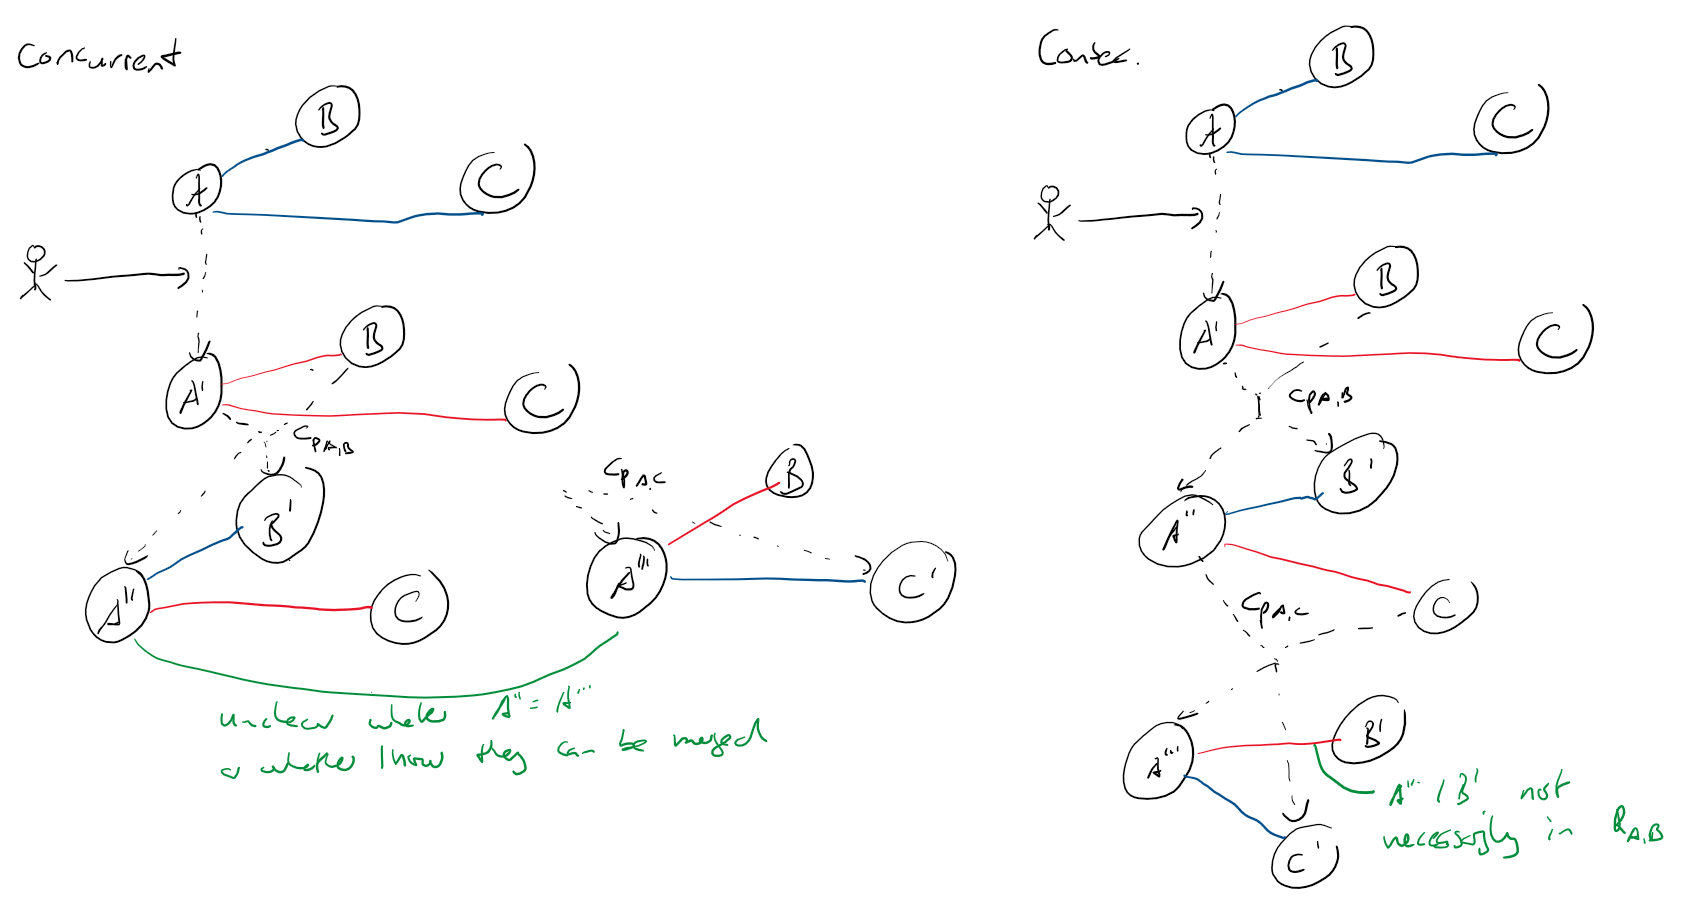 Concurrent
B
A
C
B
A'
C
CPA,B
B'
A''
C
CPA,C
B
A'''
C'
unclear whether A'' = A'''
or whether / how they can be merged
B
A
C
B
A'
C
CPA,B
B'
A''
C
CPA,C
A'''
B'
C'
A''' / B' not
necessarily in RA,B